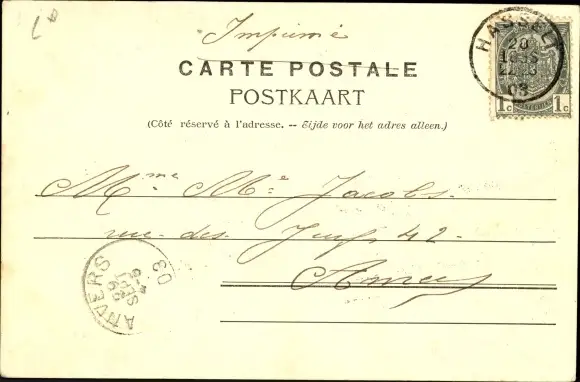 Imprimé
HASSELT
20
03
1c 1c
CARTE POSTALE
POSTKAART
(Côté réservé à l'adresse. -- Zijde voor het adres alleen.)
Mme Me Jacobs
rue des 42
Anvers
ANVERS
SEPT
03